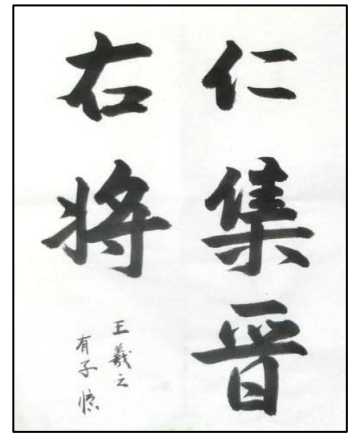 仁集晋
右将
王羲之
有子